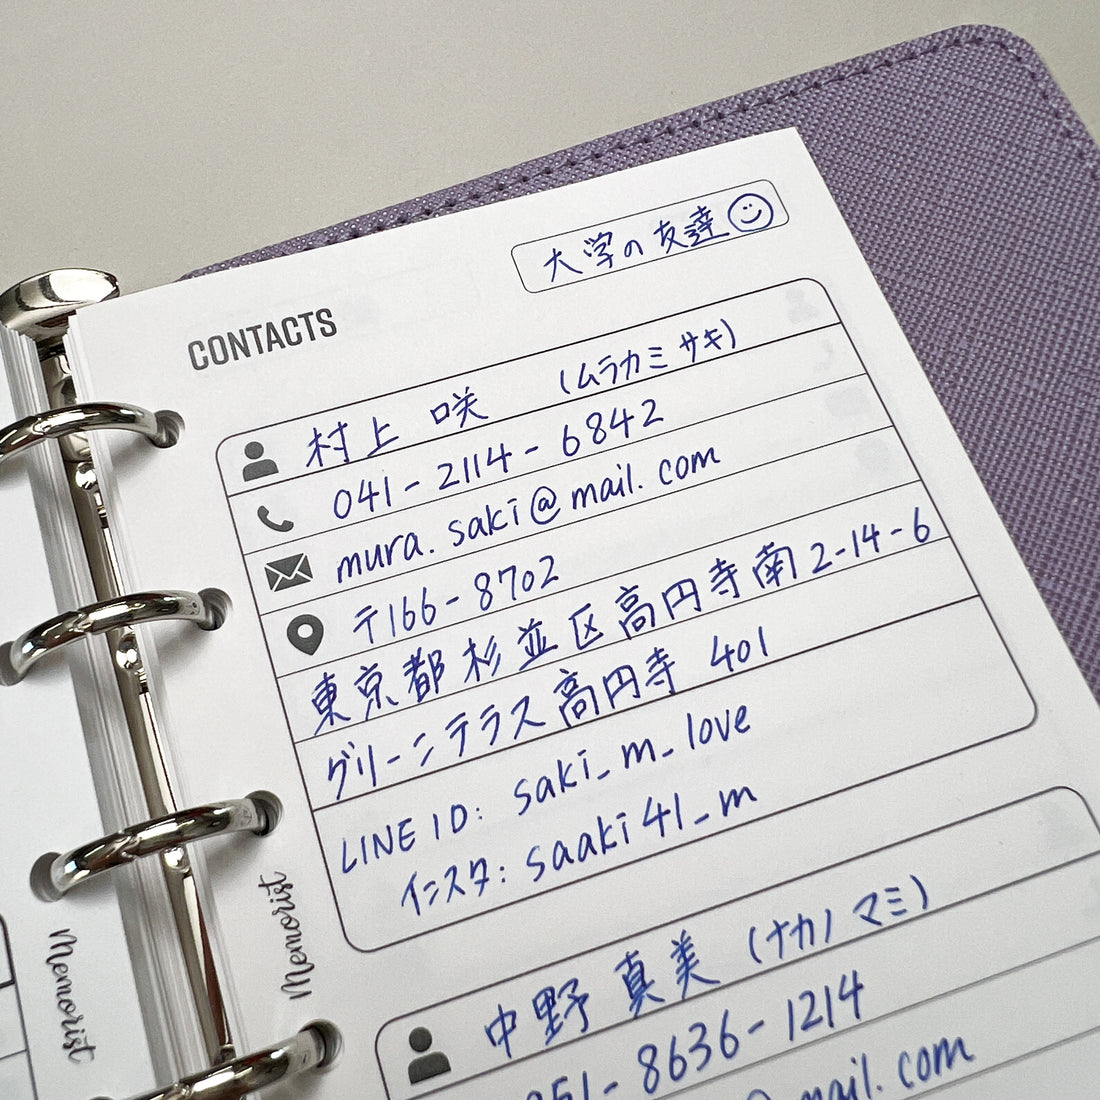 大学の友達
CONTACTS
村上 咲 (ムラカミ サキ)
041-2114-6842
mura.saki@mail.com
〒166-8702
東京都杉並区高円寺南2-14-6
グリーンテラス高円寺 401
LINE ID: saki_m_love
インスタ: saaki41_m
中野 真美 (ナカノ マミ)
051-8636-1214
mail.com
Memorist
Memorist